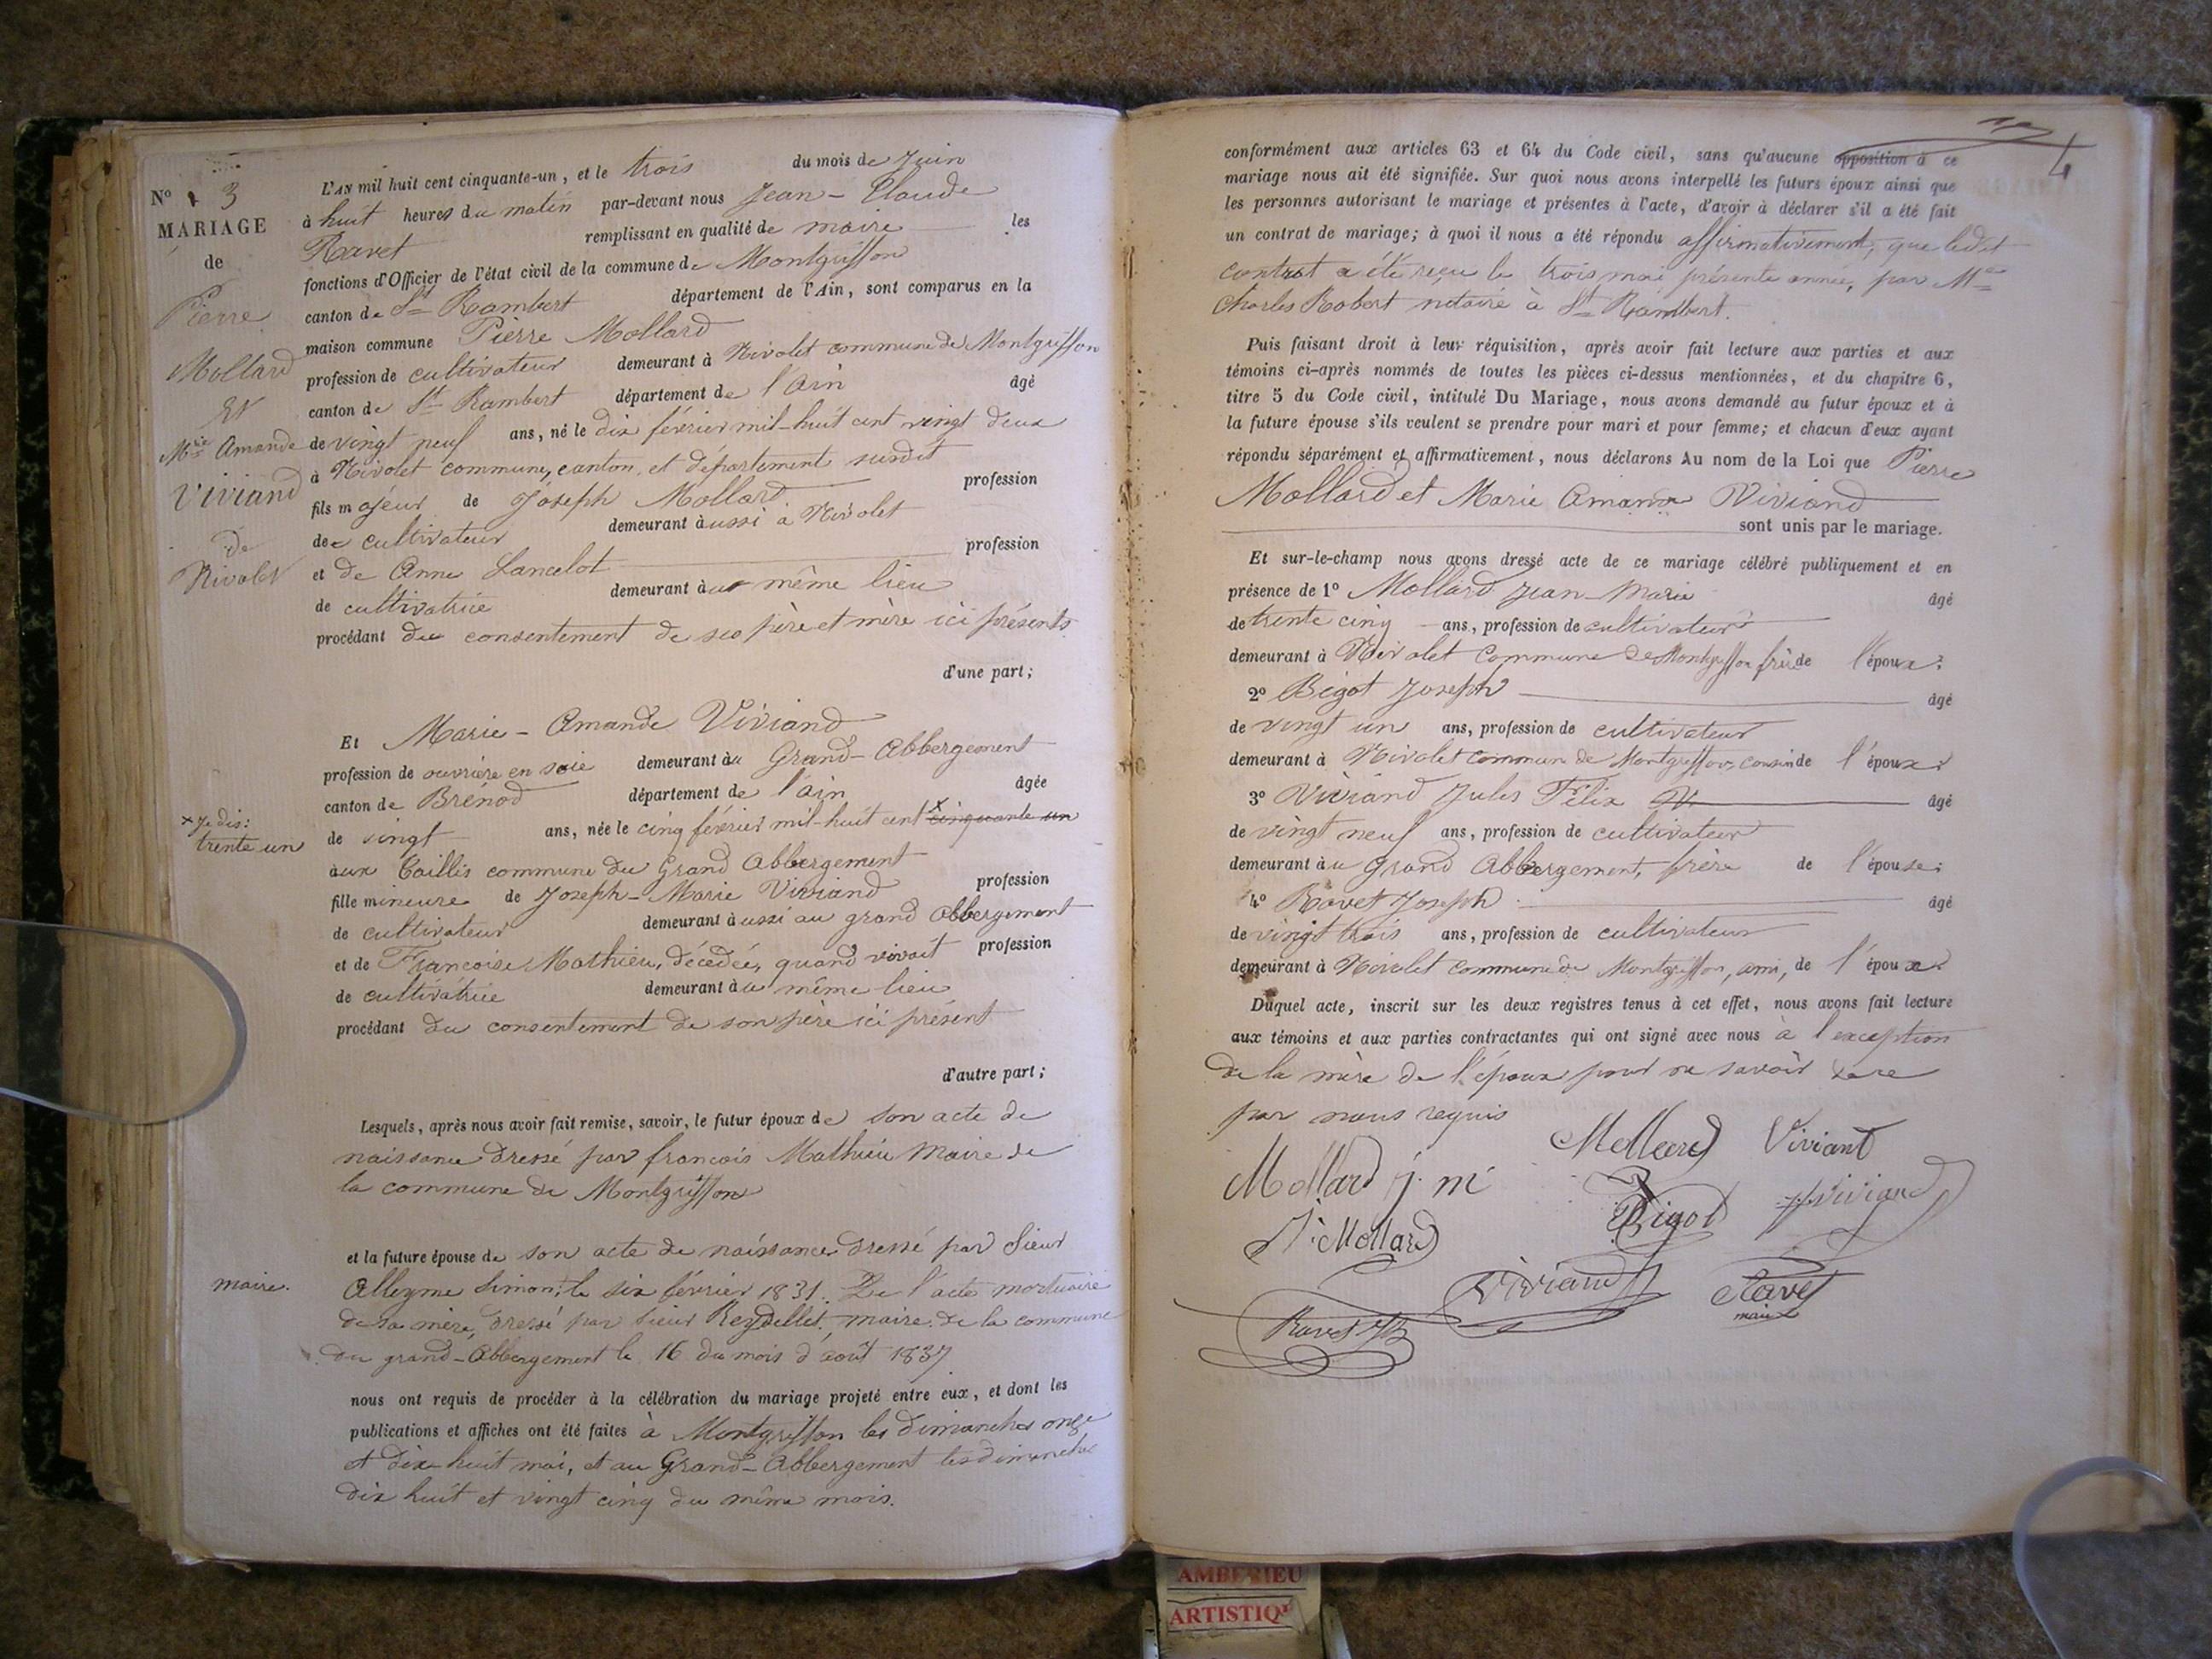 N° 3
MARIAGE
de
Pierre
Mollard
Et
Mie Amande
Viviand
de
Nivolet
L'AN mil huit cent cinquante-un, et le trois du mois de Juin
à huit heures du matin par-devant nous Jean-Claude
Ravet remplissant en qualité de maire les
fonctions d'Officier de l'état civil de la commune de Montgriffon
canton de St Rambert département de l'Ain, sont comparus en la
maison commune Pierre Mollard
profession de cultivateur demeurant à Nivolet commune de Montgriffon
canton de St Rambert département de l'Ain âgé
de vingt neuf ans, né le dix février mil-huit cent vingt deux
à Nivolet commune, canton, et département susdit
fils majeur de Joseph Mollard profession
de cultivateur demeurant à ussi à Nivolet
et de Anne Lancelot profession
de cultivatrice demeurant au même lieu
procédant du consentement de ses père et mère ici présents
d'une part;
Et Marie-Amande Viviand
profession de ouvrière en soie demeurant au Grand-Abbergement
canton de Brénod département de l'ain âgée
de vingt ans, née le cinq février mil-huit cent x cinquante un
x Je dis:
trente un
aux Taillis commune du Grand Abbergement
fille mineure de Joseph-Marie Viviand profession
de cultivateur demeurant à ussi au grand abbergement
et de Françoise Mathieu, décédée, quand vivait profession
de cultivatrice demeurant au même lieu
procédant du consentement de son père ici présent
d'autre part;
Lesquels, après nous avoir fait remise, savoir, le futur époux de son acte de
naissance dressé par françois Mathieu Maire de
la commune de Montgriffon
et la future épouse de son acte de naissance dressé par Sieur
maire.
Alleyme Simon, le six février 1831. De l'acte mortuaire
de sa mère, dressé par sieur Reydellet, maire de la commune
du grand-Abbergement le 16 du mois d'août 1837
nous ont requis de procéder à la célébration du mariage projeté entre eux, et dont les
publications et affiches ont été faites à Montgriffon les dimanches onze
et dix-huit mai, et au Grand-Abbergement les dimanches
dix huit et vingt cinq du même mois.
4
conformément aux articles 63 et 64 du Code civil, sans qu'aucune opposition à ce
mariage nous ait été signifiée. Sur quoi nous avons interpellé les futurs époux ainsi que
les personnes autorisant le mariage et présentes à l'acte, d'avoir à déclarer s'il a été fait
un contrat de mariage; à quoi il nous a été répondu affirmativement, que ledit
contrat a été reçu le trois mai présente année, par Me
Charles Robert notaire à St Rambert.
Puis faisant droit à leur réquisition, après avoir fait lecture aux parties et aux
témoins ci-après nommés de toutes les pièces ci-dessus mentionnées, et du chapitre 6,
titre 5 du Code civil, intitulé Du Mariage, nous avons demandé au futur époux et à
la future épouse s'ils veulent se prendre pour mari et pour femme; et chacun d'eux ayant
répondu séparément et affirmativement, nous déclarons Au nom de la Loi que Pierre
Mollard et Marie Amande Viviand
sont unis par le mariage.
Et sur-le-champ nous avons dressé acte de ce mariage célébré publiquement et en
présence de 1° Mollard Jean-Marie âgé
de trente cinq ans, profession de cultivateur
demeurant à Nivolet Commune de Montgriffon frère de l'époux;
2° Bigot Joseph âgé
de vingt un ans, profession de cultivateur
demeurant à Nivolet commune de Montgriffon, cousin de l'époux
3° Viviand Jules Félix âgé
de vingt neuf ans, profession de cultivateur
demeurant au Grand Abbergement, frère de l'épouse;
4° Ravet Joseph âgé
de vingt trois ans, profession de cultivateur
demeurant à Nivolet commune de Montgriffon, ami, de l'époux
Duquel acte, inscrit sur les deux registres tenus à cet effet, nous avons fait lecture
aux témoins et aux parties contractantes qui ont signé avec nous à l'exception
de la mère de l'époux pour ne savoir
par nous requis
Mollard Viviant
Mollard j. m
Bigot Viviand
Mollard
Viviand Ravet
maire
Ravet
AMBERIEU
ARTISTIQU